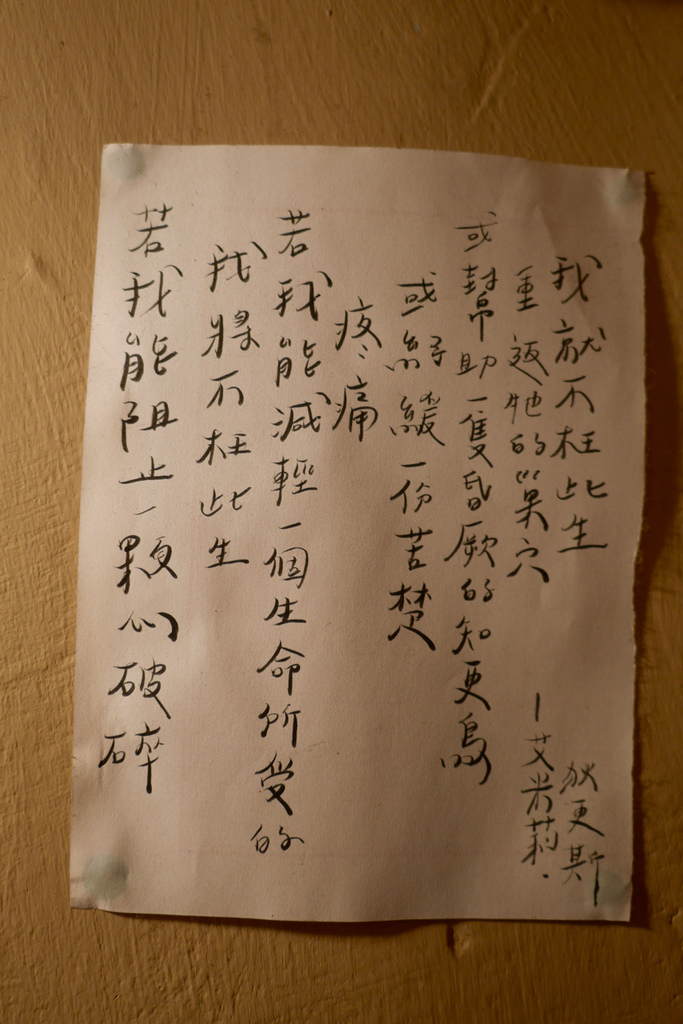 若我能阻止一顆心破碎
我將不枉此生
若我能減輕一個生命所受的
疼痛
或紓緩一份苦楚
或幫助一隻昏厥的知更鳥
重返牠的巢穴
我就不枉此生
—艾米莉．
狄更斯